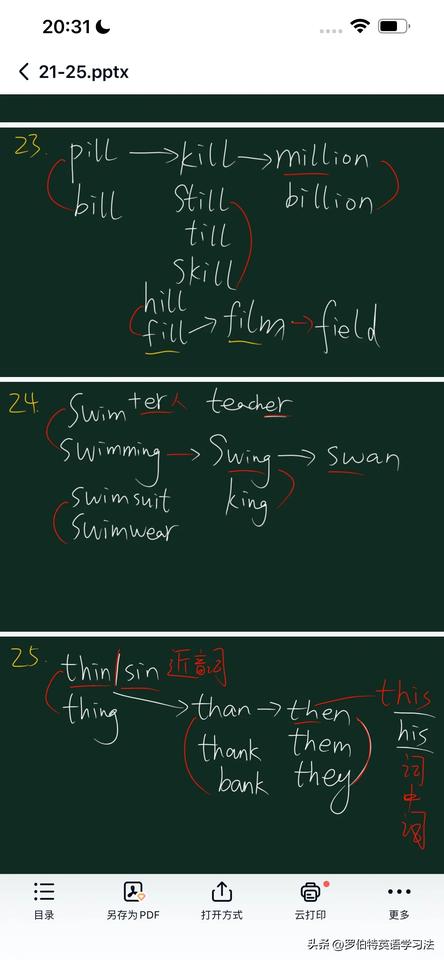 20:31
21-25.pptx
23. pill → kill → million
bill still billion
till
skill
hill
fill → film → field
24. Swim +er 人 teacher
swimming → Swing → swan
swimsuit king
swimwear
25. thin/sin 近音词
thing than → then this
thank them his
bank they 词中词
目录 另存为PDF 打开方式 云打印 更多
头条 @罗伯特英语学习法